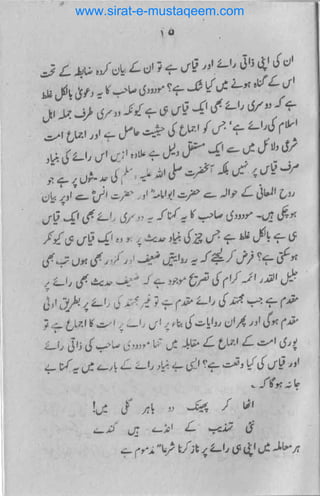 www.sirat-e-mustaqeem.com
۱۵
ان کی اپنی ذاتی رائے اور قیاس ہے تو ان کے بیان کردہ ضابطہ کے تحت
اس کے گناہ ہونے میں کیا شک ہے؟ مودودی صاحب کا یہ دعویٰ بالکل غلط
ہے کہ دوسری رائے بھی ایک قیاس ہی ہے کیونکہ دوسری طرف جملہ اہل
اسلام کی رائے ہے، جس کو اجماع کی حیثیت حاصل ہے اور اجماع امت
شرعی دلائل میں سے ایک مستقل دلیل ہے علاوہ ازیں اس رائے کی بنیاد
صرف قیاس پر نہیں بلکہ آنحضرت صلی اللہ علیہ وسلم کی حدیث پر ہے جو
روح المعانی کے حوالہ سے حضرت ابو امامہؓ اور حضرت انسؓ سے اوپر بیان
ہو چکی ہیں۔ مودودی صاحب کا یہ کہنا کہ دوسری رائے بھی ایک قیاس
ہی ہے بالکل غلط ہے جس چیز کی بنیاد حدیث پر ہو وہ ایک قیاس ہی کیونکر
ہو سکتی ہے؟ فرض کر لیجئے کہ یہ روایتیں ضعیف اور کمزور ہی ہوں تب بھی
جلیل القدر ائمہ کرام کی تصریح موجود ہے کہ ضعیف حدیث بھی رائے پر
مقدم ہے جب مجتہد کی رائے پر مقدم ہے تو غیر مجتہد کی رائے پر بطریق اولیٰ
مقدم ہو گی اور پھر ان روایات کی بناء پر اس رائے پر امت کا اجماع ہے تو
پوری امت کے اجماع کے مقابلہ میں تنہا مودودی صاحب کی ذاتی رائے
اور قیاس کی کیا وقعت ہے؟ ایسی بے بنیاد رائے کے بارے میں یہ کہنا ہے
بے جا نہ ہو گا کہ ۔
اٹھا کر پھینک دو باہر گلی میں!
نئی تہذیب کے انڈے ہیں گندے
ہر معاملہ میں اپنی ہی رائے پر ناز کرنا شرعاً مذموم ہے